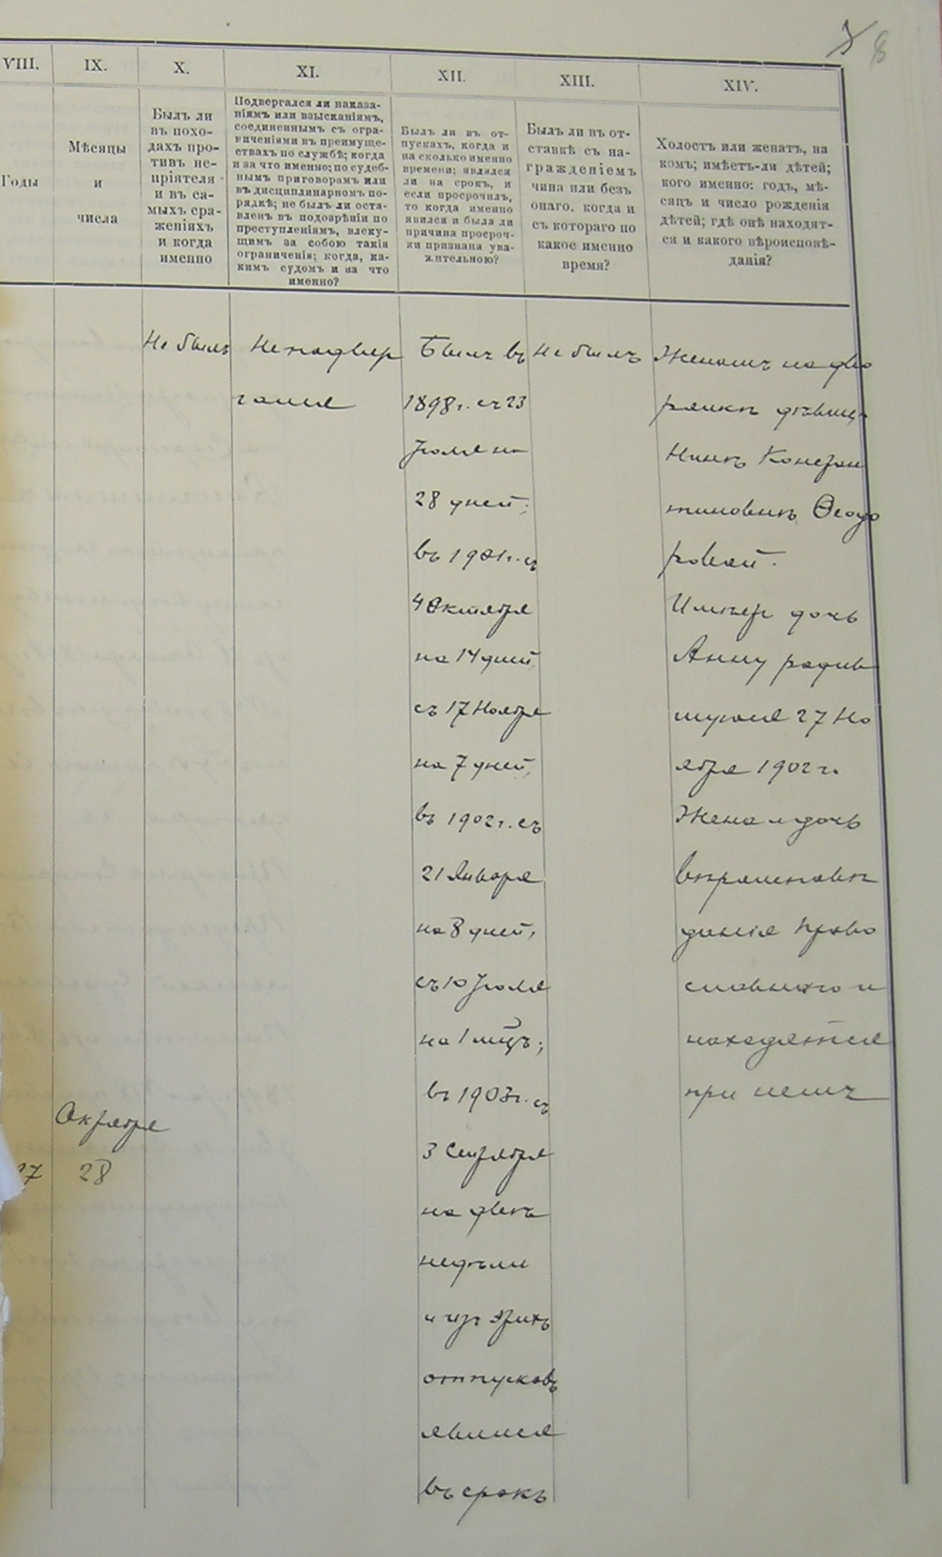 8
VIII.
IX.
X.
XI.
XII.
XIII.
XIV.
Годы
Мѣсяцы
и
числа
Былъ ли
въ похо-
дахъ про-
тивъ не-
пріятеля
и въ са-
мыхъ сра-
женіяхъ
и когда
именно
Подвергался ли наказа-
ніямъ или взысканіямъ,
соединеннымъ съ огра-
ниченіями въ преимуще-
ствахъ по службѣ; когда
и за что именно; по судеб-
нымъ приговорамъ или
въ дисциплинарномъ по-
рядкѣ; не былъ ли оста-
вленъ въ подозрѣніи по
преступленіямъ, влеку-
щимъ за собою такія
ограниченія; когда, ка-
кимъ судомъ и за что
именно?
Былъ ли въ от-
пускахъ, когда и
на сколько именно
времени; явился
ли на срокъ, и
если просрочилъ,
то когда именно
явился и была ли
причина просроч-
ки признана ува-
жительною?
Былъ ли въ от-
ставкѣ съ на-
гражденіемъ
чина или безъ
онаго, когда и
съ котораго по
какое именно
время?
Холостъ или женатъ, на
комъ; имѣетъ-ли дѣтей;
кого именно: годъ, мѣ-
сяцъ и число рожденія
дѣтей; гдѣ онѣ находят-
ся и какого вѣроисповѣ-
данія?
Октября
27 28
Не былъ
Не подвер
гался
Былъ въ
1898 г. съ 23
Іюля на
28 дней;
въ 1901 г. съ
4 Октября
на 14 дней,
съ 17 Ноября
на 7 дней,
въ 1902 г. съ
21 Января
на 8 дней,
съ 10 Іюля
на 1 мѣсцъ;
въ 1903 г. съ
3 Сентября
на двѣ
недѣли
и изъ этихъ
отпусковъ
явился
въ срокъ
Не былъ
Женатъ на дво
рянкѣ дѣвицѣ
Нинѣ Констан
тиновнѣ Ѳеодо
ровой.
Имѣетъ дочь
Анну родив
шуюся 27 Но
ября 1902 г.
Жена и дочь
вѣроисповѣ
данія Право
славнаго и
находятся
при немъ